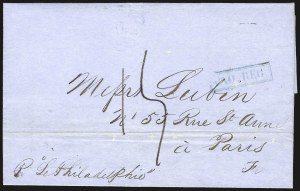 Messrs Luben
No 55 Rue St Ann
à Paris
Fr
P "St Philadelphia"
15